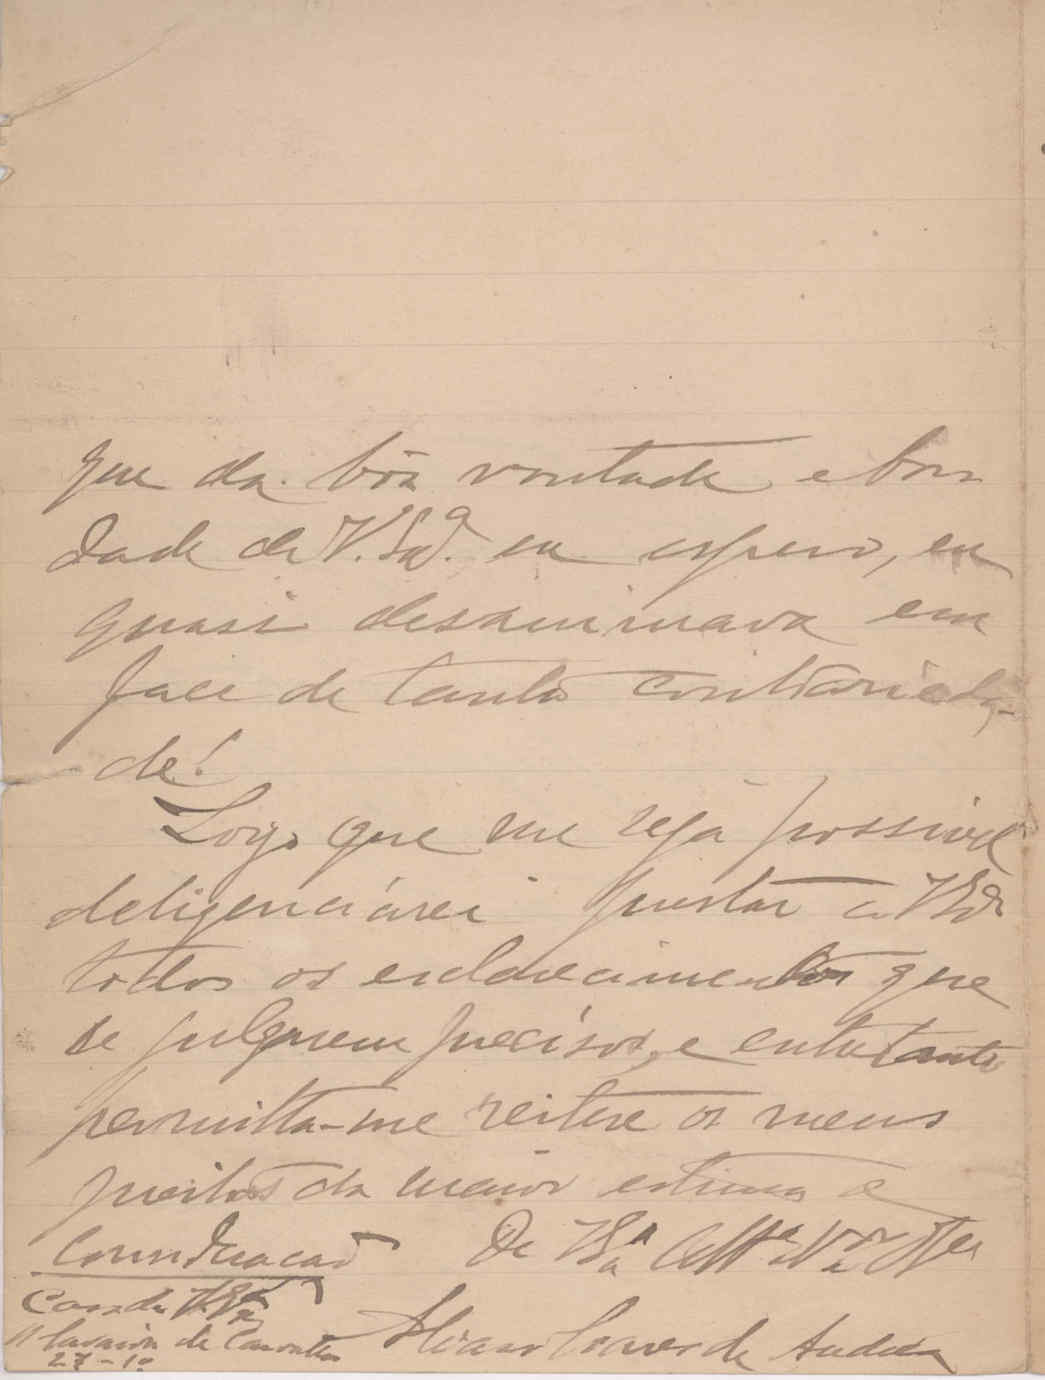 que da bôa vontade e bon
dade de V. Sa. eu espero, eu
quasi desanimava em
face de tanta contrarieda-
de!
Logo que me seja possivel
deligenciárei prestar a V Sa
todos os esclarecimentos que
se julguem precisos, e entretanto
permitta-me reitere os meus
preitos da maior estima e
consideração De V Sa Atto
Casa de V. Sa
de Carvalho Alvaro Soares de Andréa
27-1º